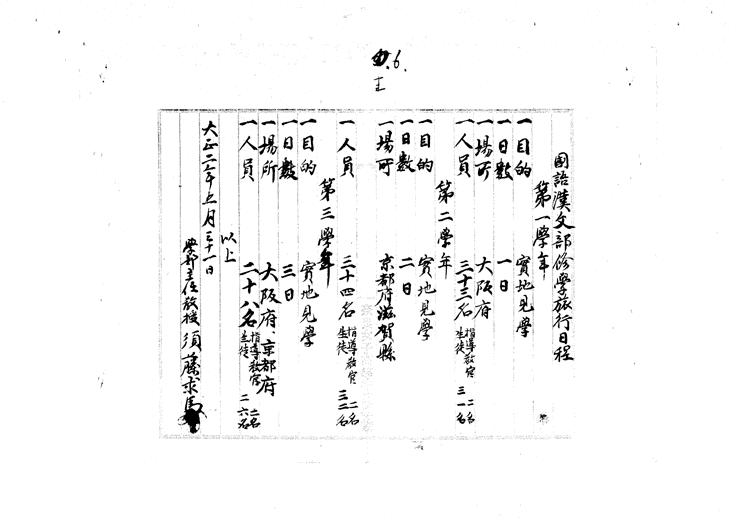 の.6.
國語漢文部修學旅行日程
第一學年
一目的 實地見學
一日數 一日
一場所 大阪府
一人員 三十三名 指導教官 二名 生徒 三一名
第二學年
一目的 實地見學
一日數 二日
一場所 京都府滋賀縣
一人員 三十四名 指導教官 二名 生徒 三二名
第三學年
一目的 實地見學
一日數 三日
一場所 大阪府、京都府
一人員 二十八名 指導教官 二名 生徒 二六名
以上
大正二年五月三十一日
學部主任教授 須藤求馬